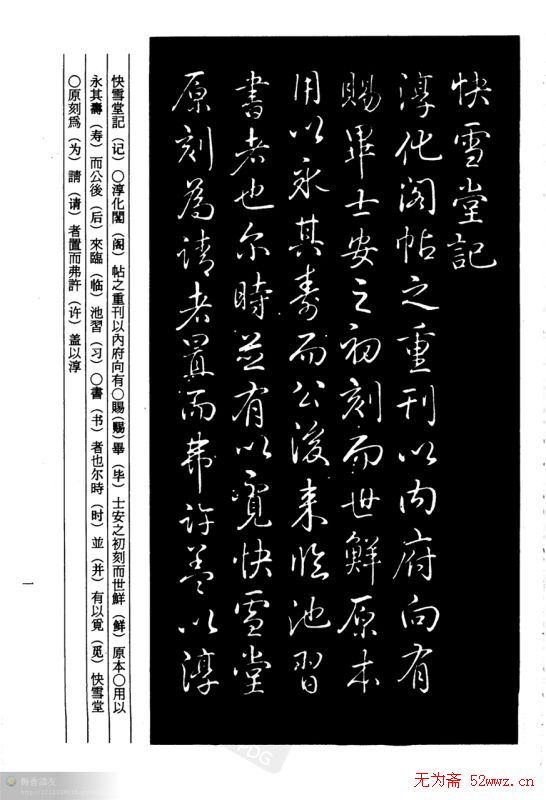 快雪堂記
淳化阁帖之重刊以内府向有
賜畢士安之初刻而世鮮原本
用以永其壽而公後来临池習
書者也尔時並有以覓快雪堂
原刻為請者置而弗許盖以淳
快雪堂記（记）〇淳化閣（阁）帖之重刊以內府向有〇賜（赐）畢（毕）士安之初刻而世鮮（鲜）原本〇用以
永其壽（寿）而公後（后）來臨（临）池習（习）〇書（书）者也尔時（时）並（并）有以覓（觅）快雪堂
〇原刻爲（为）請（请）者置而弗許（许）盖以淳
一
梅香論友
无为斋 52wwz.cn
PDG